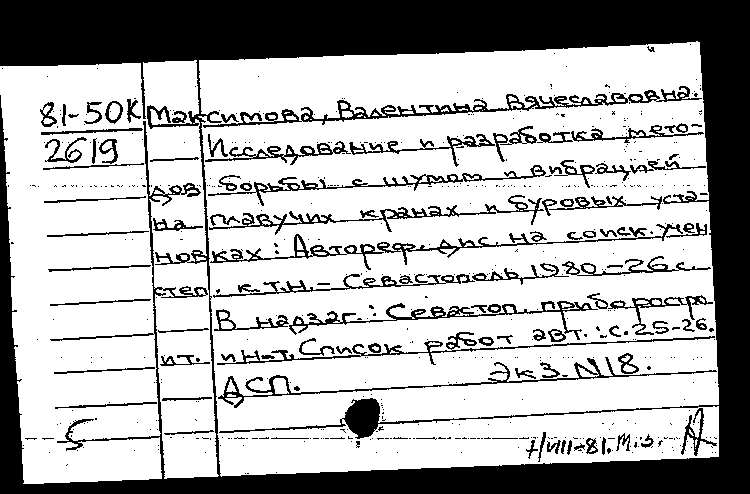 81-50К Максимова, Валентина Вячеславовна.
2619 Исследование и разработка мето-
дов борьбы с шумом и вибрацией
на плавучих кранах и буровых уста-
новках: Автореф. дис. на соиск. учен.
степ. к.т.н. - Севастополь, 1980. - 26 с.
В надзаг.: Севастоп. приборостро
ит. ин-т. Список работ авт.: с. 25-26.
ДСП. Экз. N18.
5